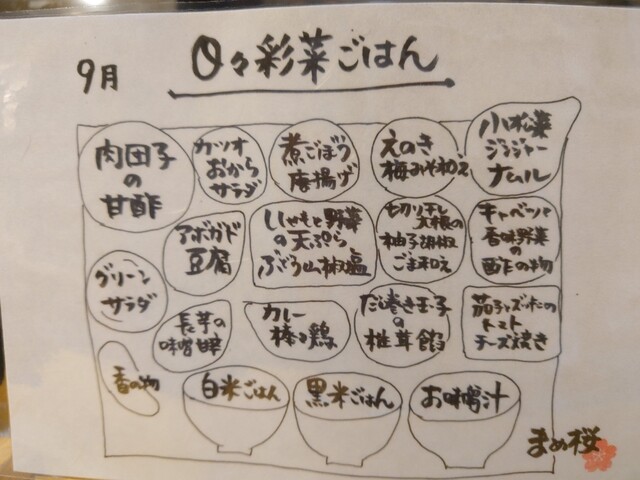 9月
日々彩菜ごはん
肉団子
の
甘酢
カツオ
おから
サラダ
煮ごぼう
唐揚げ
えのき
梅みそ和え
小松菜
ジンジャー
ナムル
アボカド
豆腐
ししゃもと野菜
の天ぷら
ぶどう山椒塩
切り干し
大根の
柚子胡椒
ごま和え
キャベツと
香味野菜
の
酢の物
グリーン
サラダ
長芋の
味噌
カレー
棒々鶏
だし巻き玉子
の
椎茸餡
茄子とズッキーニの
トマト
チーズ焼き
香の物
白米ごはん
黒米ごはん
お味噌汁
まめ桜